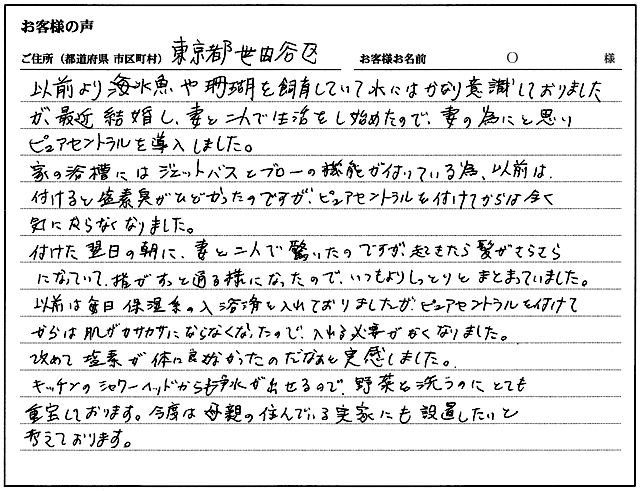 お客様の声
ご住所（都道府県 市区町村） 東京都世田谷区 お客様お名前 〇 様
以前より海水魚や珊瑚を飼育していて水にはかなり意識しておりました
が、最近結婚し、妻と二人で生活をし始めたので、妻の為にと思い
ピュアセントラルを導入しました。
家の浴槽にはジェットバスとブローの機能が付いている為、以前は、
付けると塩素臭がひどかったのですが、ピュアセントラルを付けてからは全く
気にならなくなりました。
付けた翌日の朝に、妻と二人で驚いたのですが、起きたら髪がさらさら
になっていて、指がすっと通る様になったので、いつもよりしっとりとまとまっていました。
以前は毎日保湿系の入浴剤を入れておりましたが、ピュアセントラルを付けて
からは肌がカサカサにならなくなったので、入れる必要がなくなりました。
改めて塩素が体に良くなかったのだなぁと実感しました。
キッチンのシャワーヘッドからも浄水が出せるので、野菜を洗うのにとても
重宝しております。今度は母親の住んでいる実家にも設置したいと
考えております。